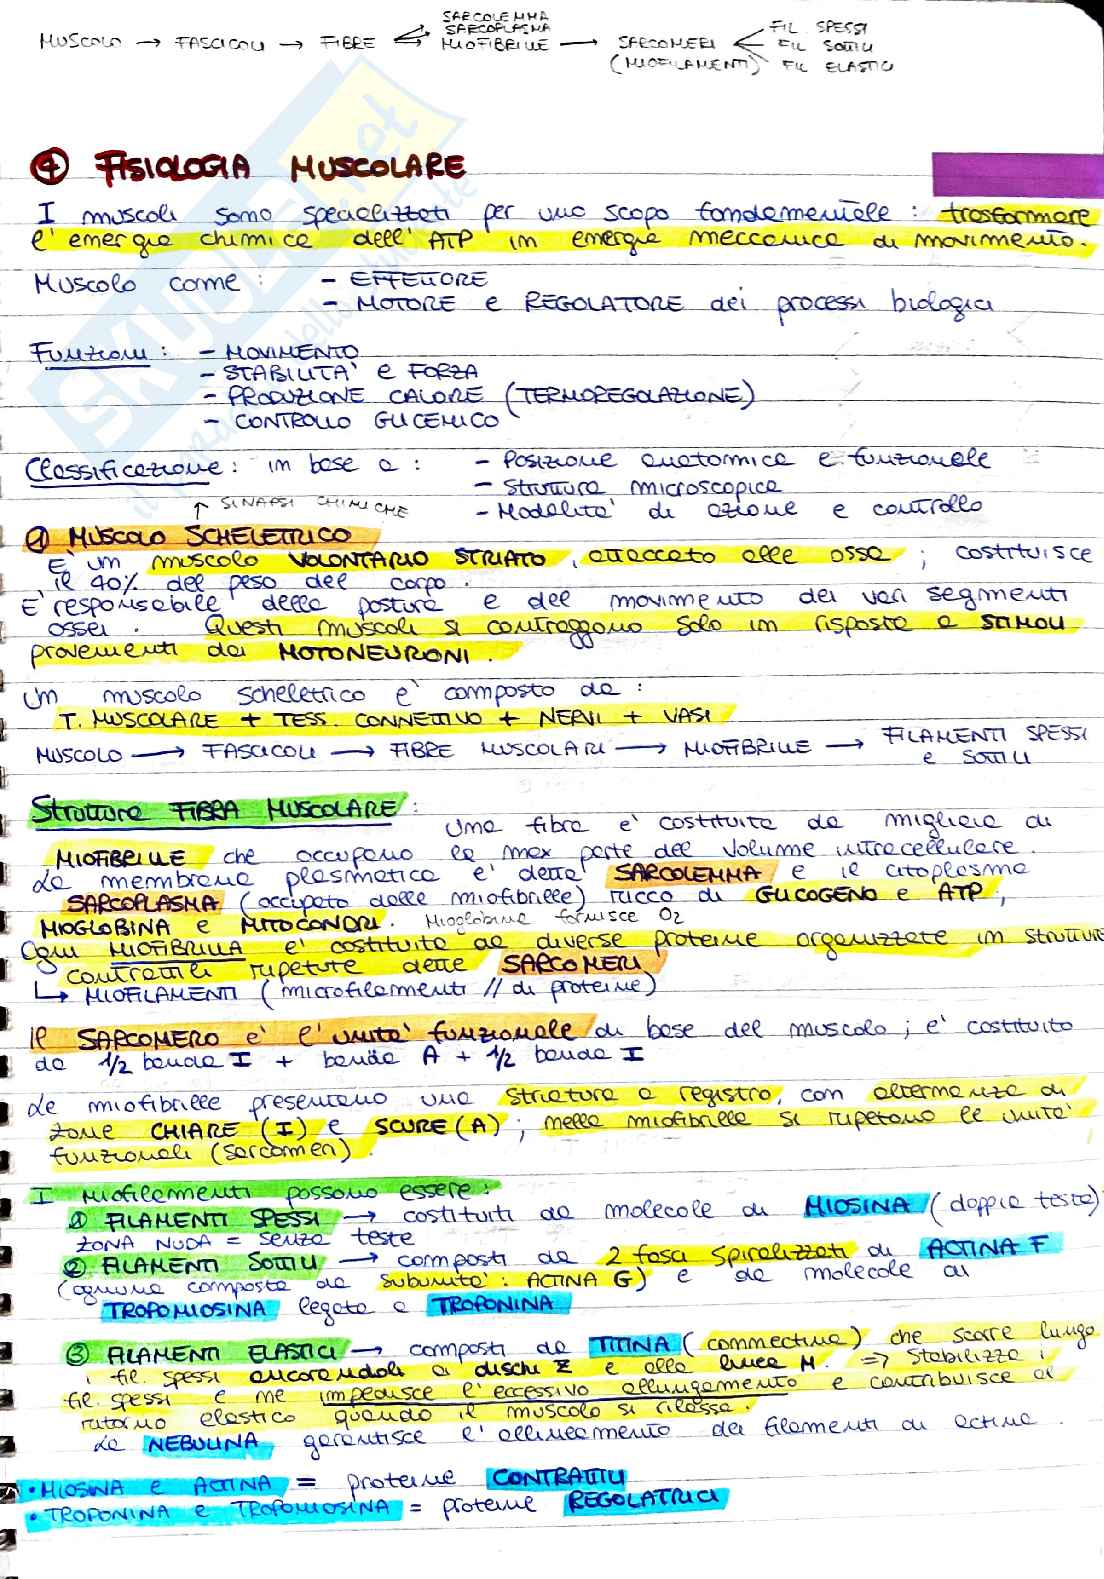 SARCOLEMMA
MUSCOLO → FASCICOLI → FIBRE SARCOPLASMA
MIOFIBRILLE → SARCOMERI (MIOFILAMENTI)
FIL SPESSI
FIL SOTTILI
FIL ELASTICI
④ FISIOLOGIA MUSCOLARE
I muscoli sono specializzati per uno scopo fondamentale : trasformare
l'energia chimica dell'ATP in energia meccanica di movimento.
Muscolo come : - EFFETTORE
- MOTORE e REGOLATORE dei processi biologici
Funzioni : - MOVIMENTO
- STABILITA' e FORZA
- PRODUZIONE CALORE (TERMOREGOLAZIONE)
- CONTROLLO GLICEMICO
Classificazione : in base a : - Posizione anatomica e funzionale
- Struttura microscopica
↑ SINAPSI CHIMICHE
- Modalita' di azione e controllo
① MUSCOLO SCHELETRICO
E' un muscolo VOLONTARIO STRIATO, attaccato alle ossa ; costituisce
il 40% del peso del corpo.
E' responsabile della postura e del movimento dei vari segmenti
ossei. Questi muscoli si contraggono solo in risposta a STIMOLI
provenienti dai MOTONEURONI.
Un muscolo scheletrico e' composto da :
T. MUSCOLARE + TESS. CONNETTIVO + NERVI + VASI
MUSCOLO → FASCICOLI → FIBRE MUSCOLARI → MIOFIBRILLE → FILAMENTI SPESSI
e SOTTILI
Struttura FIBRA MUSCOLARE :
Una fibra e' costituita da migliaia di
MIOFIBRILLE che occupano la max parte del volume intracellulare.
La membrana plasmatica e' detta SARCOLEMMA e il citoplasma
SARCOPLASMA (occupato dalle miofibrille) ricco di GLICOGENO e ATP ;
MIOGLOBINA e MITOCONDRI. Mioglobina fornisce O2
Ogni MIOFIBRILLA e' costituita da diverse proteine organizzate in strutture
contrattili ripetute dette SARCOMERI
↳ MIOFILAMENTI (microfilamenti // di proteine)
Il SARCOMERO e' l'unita' funzionale di base del muscolo ; e' costituito
da 1/2 banda I + banda A + 1/2 banda I
Le miofibrille presentano una striatura a registro, con alternanza di
zone CHIARE (I) e SCURE (A) ; nella miofibrilla si ripetono le unita'
funzionali (sarcomeri).
I miofilamenti possono essere :
① FILAMENTI SPESSI → costituiti da molecole di MIOSINA (doppia testa)
ZONA NUDA = senza teste
② FILAMENTI SOTTILI → composti da 2 fasci spiralizzati di ACTINA F
(ognuno composto da subunita' : ACTINA G) e da molecole di
TROPOMIOSINA legata a TROPONINA
③ FILAMENTI ELASTICI → composti da TITINA (connectina) che scorre lungo
i fil. spessi ancorandoli ai dischi Z e alla linea M. ⇒ Stabilizza i
fil. spessi e ne impedisce l'eccessivo allungamento e contribuisce al
ritorno elastico quando il muscolo si rilassa.
La NEBULINA garantisce l'allineamento dei filamenti di actina.
• MIOSINA e ACTINA = proteine CONTRATTILI
• TROPONINA e TROPOMIOSINA = proteine REGOLATRICI